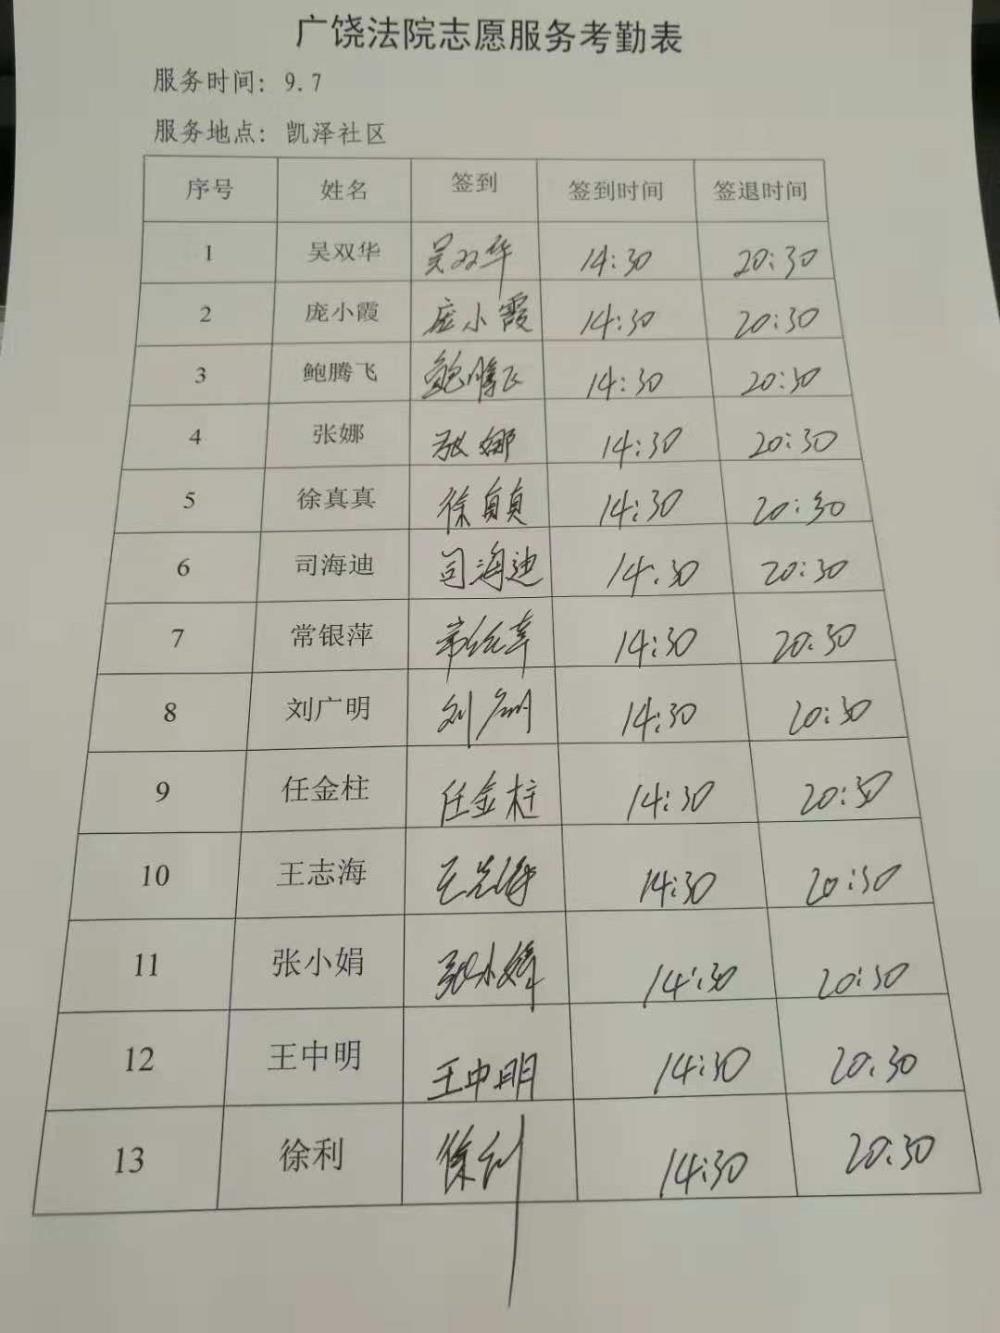 广饶法院志愿服务考勤表
服务时间：9.7
服务地点：凯泽社区
序号 姓名 签到 签到时间 签退时间
1 吴双华 吴双华 14:30 20:30
2 庞小霞 庞小霞 14:30 20:30
3 鲍腾飞 鲍腾飞 14:30 20:30
4 张娜 张娜 14:30 20:30
5 徐真真 徐真真 14:30 20:30
6 司海迪 司海迪 14:30 20:30
7 常银萍 常银萍 14:30 20:30
8 刘广明 刘广明 14:30 20:30
9 任金柱 任金柱 14:30 20:30
10 王志海 王志海 14:30 20:30
11 张小娟 张小娟 14:30 20:30
12 王中明 王中明 14:30 20:30
13 徐利 徐利 14:30 20:30